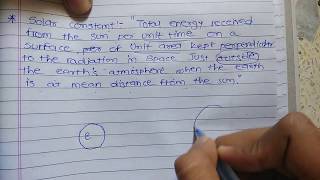 * Solar constant:- "Total energy received
from the sun per unit time on a
surface of unit area kept perpendicular
to the radiation in space Just
the earth's atmosphere when the earth
is at mean distance from the sun."
e